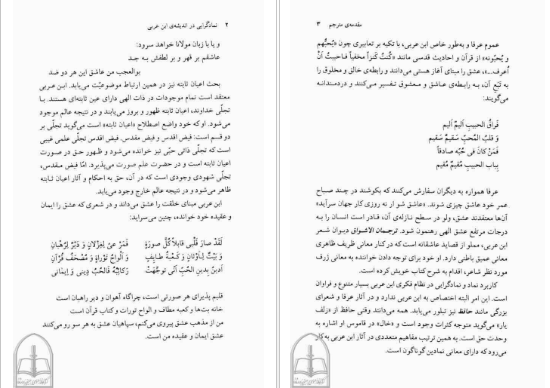 ۲ نمادگرایی در اندیشه‌ی ابن عربی
و یا با زبان مولانا خواهد سرود:
عاشقم بر قهر و بر لطفش به جد
بوالعجب من عاشق این هر دو ضد
بحث اعیان ثابته نیز در همین ارتباط موضوعیّت می‌یابد. ابن عربی
معتقد است تمام موجودات در ذات الهی دارای عین ثابته‌ای هستند. با
تجلّی خداوند، اعیان ثابته ظهور و بروز می‌یابند و در نتیجه عالم موجود
می‌شود. او که خود واضع اصطلاح «اعیان ثابته» است می‌گوید تجلّی بر
دو قسم است: فیض اقدس و فیض مقدس. فیض اقدس تجلّی علمی غیبی
است که تجلّی ذاتی حبّی نیز خوانده می‌شود و ظهور حق در صورت
اعیان ثابته است و در حضرت علم صورت می‌پذیرد. امّا فیض مقدس،
تجلّی شهودی وجودی است که در آن، حق به احکام و آثار اعیان ثابته
ظاهر می‌شود و در نتیجه عالم خارج وجود می‌یابد.
ابن عربی مبنای خلقت را عشق می‌داند و در شعری که عشق را ایمان
و عقیده خود خوانده، چنین می‌سراید:
لَقَدْ صارَ قَلْبی قابِلاً کُلَّ صورَةٍ فَمَرْعیً لِغِزْلانٍ وَ دَیْرٌ لِرُهْبانِ
وَ بَیْتٌ لِأوْثانٍ وَ کَعْبَةُ طائِفٍ وَ ألْواحُ تَوْراةٍ وَ مُصْحَفُ قُرْآنِ
اَدینُ بِدینِ الْحُبِّ أنّی تَوَجَّهَتْ رَکائِبُهُ فَالْحُبُّ دینی وَ ایمانی
قلبم پذیرای هر صورتی است، چراگاه آهوان و دیر راهبان است
خانه بت‌ها و کعبه مطاف و الواح تورات و کتاب قرآن است
من از مذهب عشق پیروی می‌کنم، سپاهیان عشق به هر سو رو می‌کنند
عشق ایمان و عقیده من است.
مقدمه‌ی مترجم ۳
عموم عرفا و به‌طور خاص ابن عربی، با تکیه بر تعابیری چون «یُحِبُّهم
و یُحبّونه» از قرآن و احادیث قدسی مانند «کُنتُ کنزاً مخفیّاً فاحببتُ أن
اُعرف...»، عشق را مبنای آغاز هستی می‌دانند و رابطه‌ی خالق و مخلوق را
به تَبَعِ آن، به رابطه‌ی عاشق و معشوق تفسیر می‌کنند و دردمندانه
می‌گویند:
فِراقُ الحبیبِ اَلیمٌ اَلیم
وَ قلبُ المُحبِّ سَقیمٌ سَقیم
فَمَنْ کانَ فی حُبِّه صادقاً
بِبابِ الحبیبِ مُقیمٌ مُقیم
عرفا همواره به دیگران سفارش می‌کنند که بکوشند در چند صباح
عمر خود عاشق چیزی شوند. «عاشق شو ار نه روزی کار جهان سرآید»
آن‌ها معتقدند عشق، ولو در سطح نازله‌ی آن، قادر است انسان را به
درجات مرتفع عشق الهی رهنمون شود. ترجمان الاشواق دیوان شعر
ابن عربی، مملو از قصاید عاشقانه است که در کنار معانی ظریف ظاهری
معانی عمیق باطنی دارد. او خود برای توجه دادن خواننده به معانی ژرف
مورد نظر شاعر، اقدام به شرح کتاب خویش کرده است.
کاربرد نماد و نمادگرایی در نظام فکری ابن عربی بسیار متنوع و فراوان
است. این امر البته اختصاص به ابن عربی ندارد و در آثار عرفا و شعرای
بزرگی مانند حافظ نیز تبلور می‌یابد. همه می‌دانند وقتی حافظ از «زلف
یار» می‌گوید متوجه کثرات وجود است و «خال» در قاموس او اشاره به
وحدت حق است. به همین ترتیب مفاهیم متعددی در آثار ابن عربی به‌کار
می‌رود که دارای معانی نمادین گوناگون است.